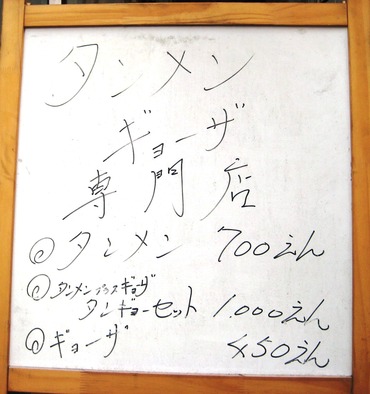 タンメン
ギョーザ
専門店
◎タンメン 700えん
◎タンメンプラスギョーザ
タンギョーセット 1,000えん
◎ギョーザ 450えん